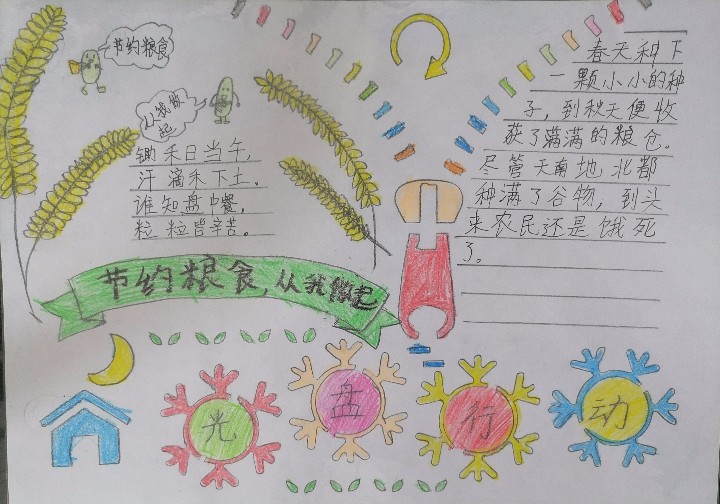 节约粮食
从我做
起
锄禾日当午，
汗滴禾下土。
谁知盘中餐，
粒粒皆辛苦。
春天种下
一颗小小的种
子，到秋天便收
获了满满的粮仓。
尽管天南地北都
种满了谷物，到头
来农民还是饿死
了。
节约粮食，从我做起
光盘行动